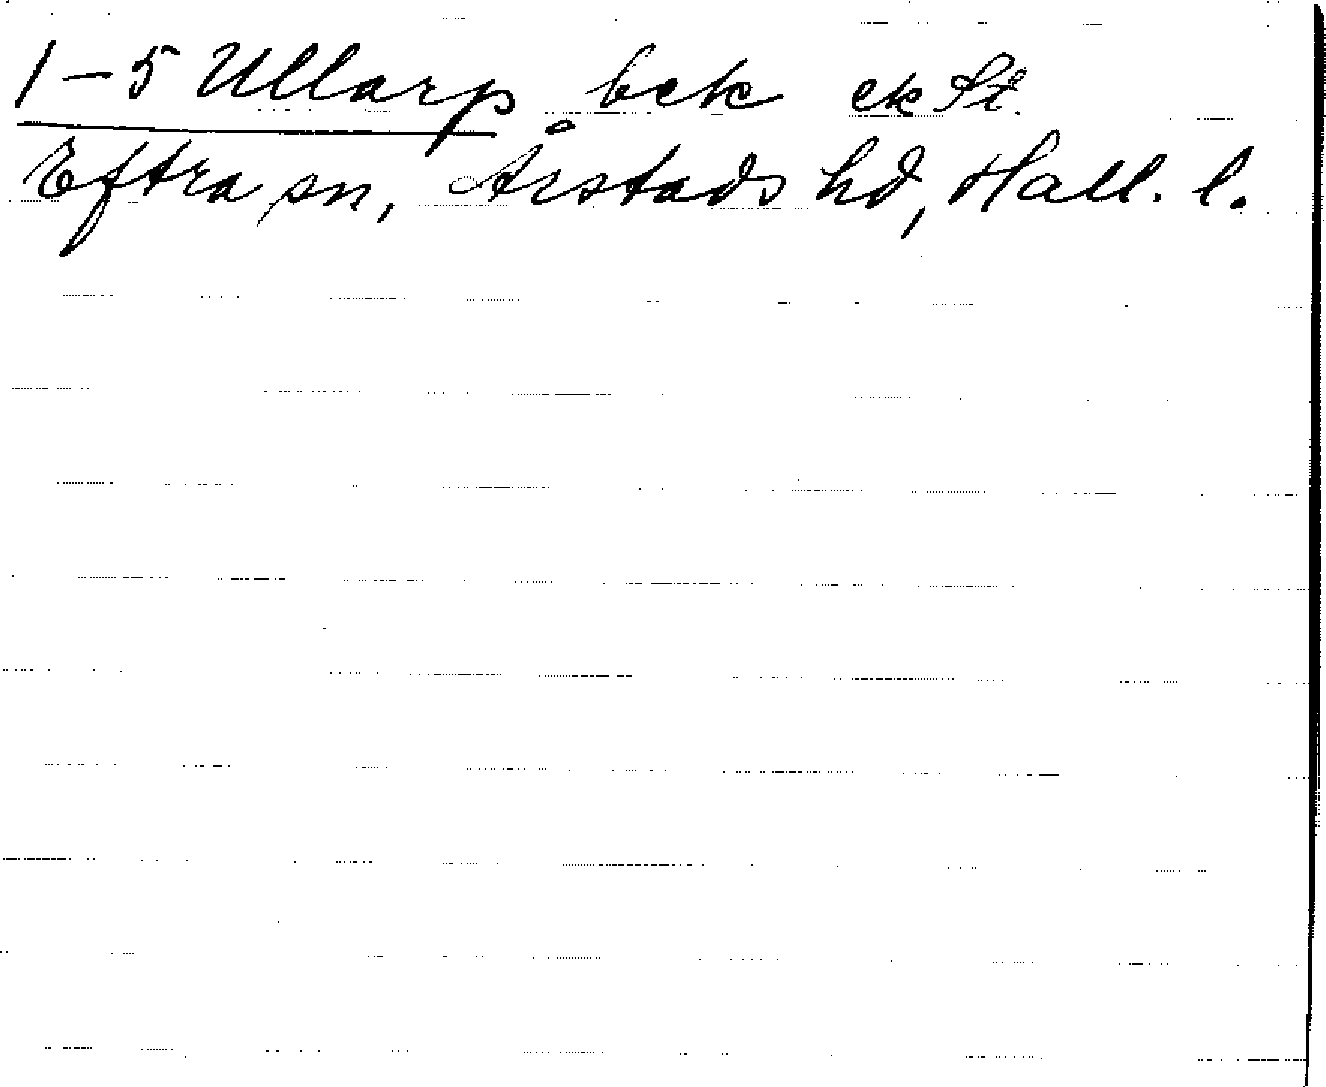 1–5 Ullarp bek ek St.
Eftra sn, Årstads hd, Hall. l.